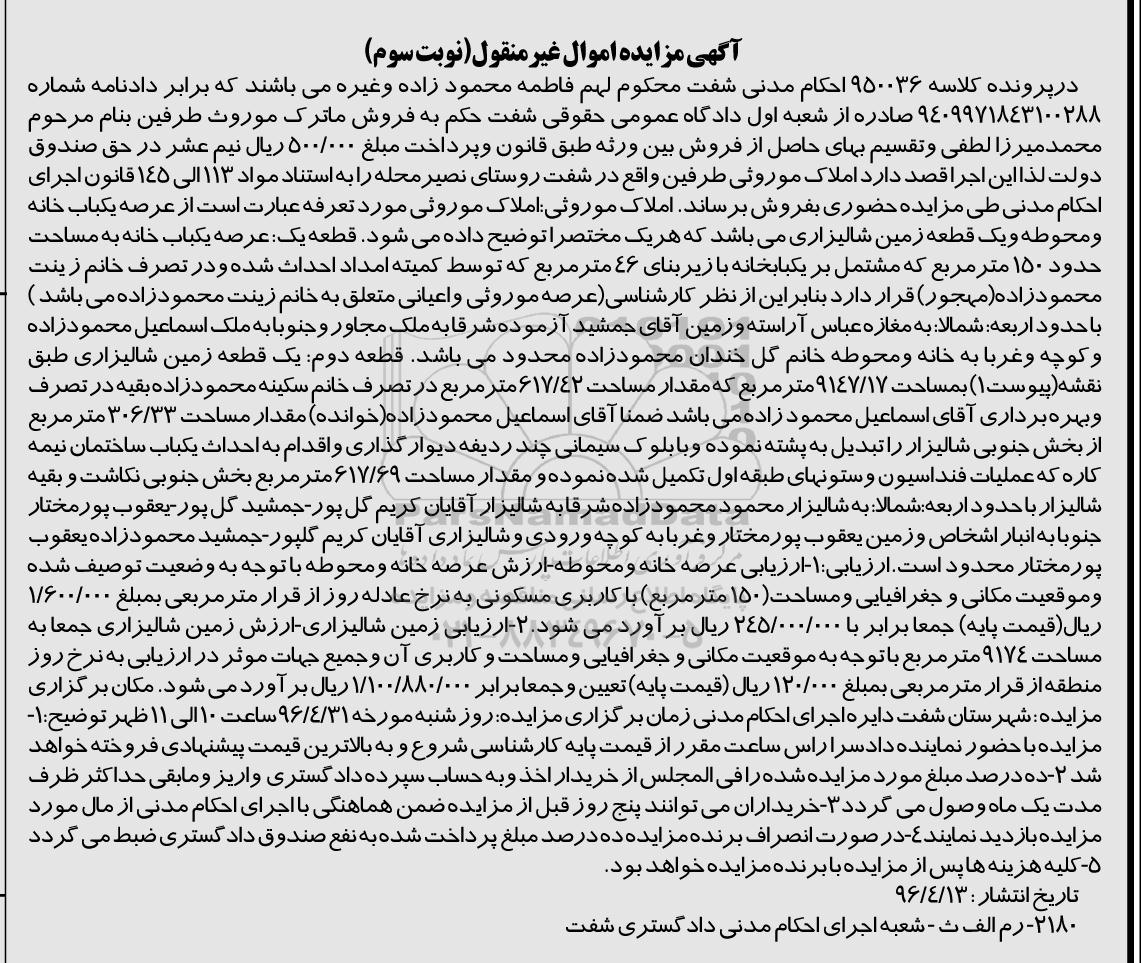 آگهی مزایده اموال غیرمنقول(نوبت سوم)
درپرونده کلاسه ۹۵۰۰۳۶ احکام مدنی شفت محکوم لهم فاطمه محمود زاده وغیره می باشند که برابر دادنامه شماره
۹۴۰۹۹۷۱۸۴۳۱۰۰۲۸۸ صادره از شعبه اول دادگاه عمومی حقوقی شفت حکم به فروش ماترک موروث طرفین بنام مرحوم
محمدمیرزا لطفی وتقسیم بهای حاصل از فروش بین ورثه طبق قانون وپرداخت مبلغ ۵۰۰/۰۰۰ ریال نیم عشر در حق صندوق
دولت لذااین اجرا قصد دارد املاک موروثی طرفین واقع در شفت روستای نصیرمحله را به استناد مواد ۱۱۳ الی ۱۴۵ قانون اجرای
احکام مدنی طی مزایده حضوری بفروش برساند. املاک موروثی:املاک موروثی مورد تعرفه عبارت است از عرصه یکباب خانه
ومحوطه ویک قطعه زمین شالیزاری می باشد که هریک مختصرا توضیح داده می شود. قطعه یک: عرصه یکباب خانه به مساحت
حدود ۱۵۰ مترمربع که مشتمل بر یکبابخانه با زیربنای ۴۶ مترمربع که توسط کمیته امداد احداث شده ودر تصرف خانم زینت
محمودزاده(مهجور) قرار دارد بنابراین از نظر کارشناسی(عرصه موروثی واعیانی متعلق به خانم زینت محمودزاده می باشد )
باحدود اربعه: شمالا: به مغازه عباس آراسته وزمین آقای جمشید آزموده شرقا به ملک مجاور وجنوبا به ملک اسماعیل محمودزاده
وکوچه وغربا به خانه ومحوطه خانم گل خندان محمودزاده محدود می باشد. قطعه دوم: یک قطعه زمین شالیزاری طبق
نقشه(پیوست۱) بمساحت ۹۱۴۷/۱۷ متر مربع که مقدار مساحت ۶۱۷/۴۲ متر مربع در تصرف خانم سکینه محمودزاده بقیه در تصرف
وبهره برداری آقای اسماعیل محمود زاده می باشد ضمنا آقای اسماعیل محمودزاده(خوانده) مقدار مساحت ۳۰۶/۳۳ متر مربع
از بخش جنوبی شالیزار را تبدیل به پشته نموده وبا بلوک سیمانی چند ردیفه دیوار گذاری واقدام به احداث یکباب ساختمان نیمه
کاره که عملیات فنداسیون وستونهای طبقه اول تکمیل شده نموده و مقدار مساحت ۶۱۷/۶۹ متر مربع بخش جنوبی نکاشت و بقیه
شالیزار با حدود اربعه:شمالا: به شالیزار محمود محمودزاده شرقا به شالیزار آقایان کریم گل پور-جمشید گل پور-یعقوب پورمختار
جنوبا به انبار اشخاص وزمین یعقوب پورمختار وغربا به کوچه ورودی و شالیزاری آقایان کریم گلپور-جمشید محمودزاده یعقوب
پورمختار محدود است.ارزیابی:۱-ارزیابی عرصه خانه ومحوطه-ارزش عرصه خانه ومحوطه با توجه به وضعیت توصیف شده
وموقعیت مکانی و جغرافیایی ومساحت(۱۵۰ مترمربع) با کاربری مسکونی به نرخ عادله روز از قرار متر مربعی بمبلغ ۱/۶۰۰/۰۰۰
ریال(قیمت پایه) جمعا برابر با ۲۴۵/۰۰۰/۰۰۰ ریال برآورد می شود. ۲-ارزیابی زمین شالیزاری-ارزش زمین شالیزاری جمعا به
مساحت ۹۱۷۴ متر مربع با توجه به موقعیت مکانی و جغرافیایی ومساحت و کاربری آن وجمیع جهات موثر در ارزیابی به نرخ روز
منطقه از قرار متر مربعی بمبلغ ۱۲۰/۰۰۰ ریال (قیمت پایه) تعیین وجمعا برابر ۱/۱۰۰/۸۸۰/۰۰۰ ریال برآورد می شود. مکان برگزاری
مزایده: شهرستان شفت دایره اجرای احکام مدنی زمان برگزاری مزایده: روز شنبه مورخه ۹۶/۴/۳۱ ساعت ۱۰ الی ۱۱ ظهر توضیح:۱-
مزایده با حضور نماینده دادسرا راس ساعت مقرر از قیمت پایه کارشناسی شروع و به بالاترین قیمت پیشنهادی فروخته خواهد
شد ۲-ده درصد مبلغ مورد مزایده شده را فی المجلس از خریدار اخذ وبه حساب سپرده دادگستری واریز ومابقی حداکثر ظرف
مدت یک ماه وصول می گردد ۳-خریداران می توانند پنج روز قبل از مزایده ضمن هماهنگی با اجرای احکام مدنی از مال مورد
مزایده بازدید نمایند ۴-در صورت انصراف برنده مزایده ده درصد مبلغ پرداخت شده به نفع صندوق دادگستری ضبط می گردد
۵-کلیه هزینه ها پس از مزایده با برنده مزایده خواهد بود.
تاریخ انتشار : ۹۶/۴/۱۳
۲۱۸۰- رم الف ث - شعبه اجرای احکام مدنی دادگستری شفت
ParsNamadData
۰۲۱-۸۸۳۴۹۶۷۰-۵